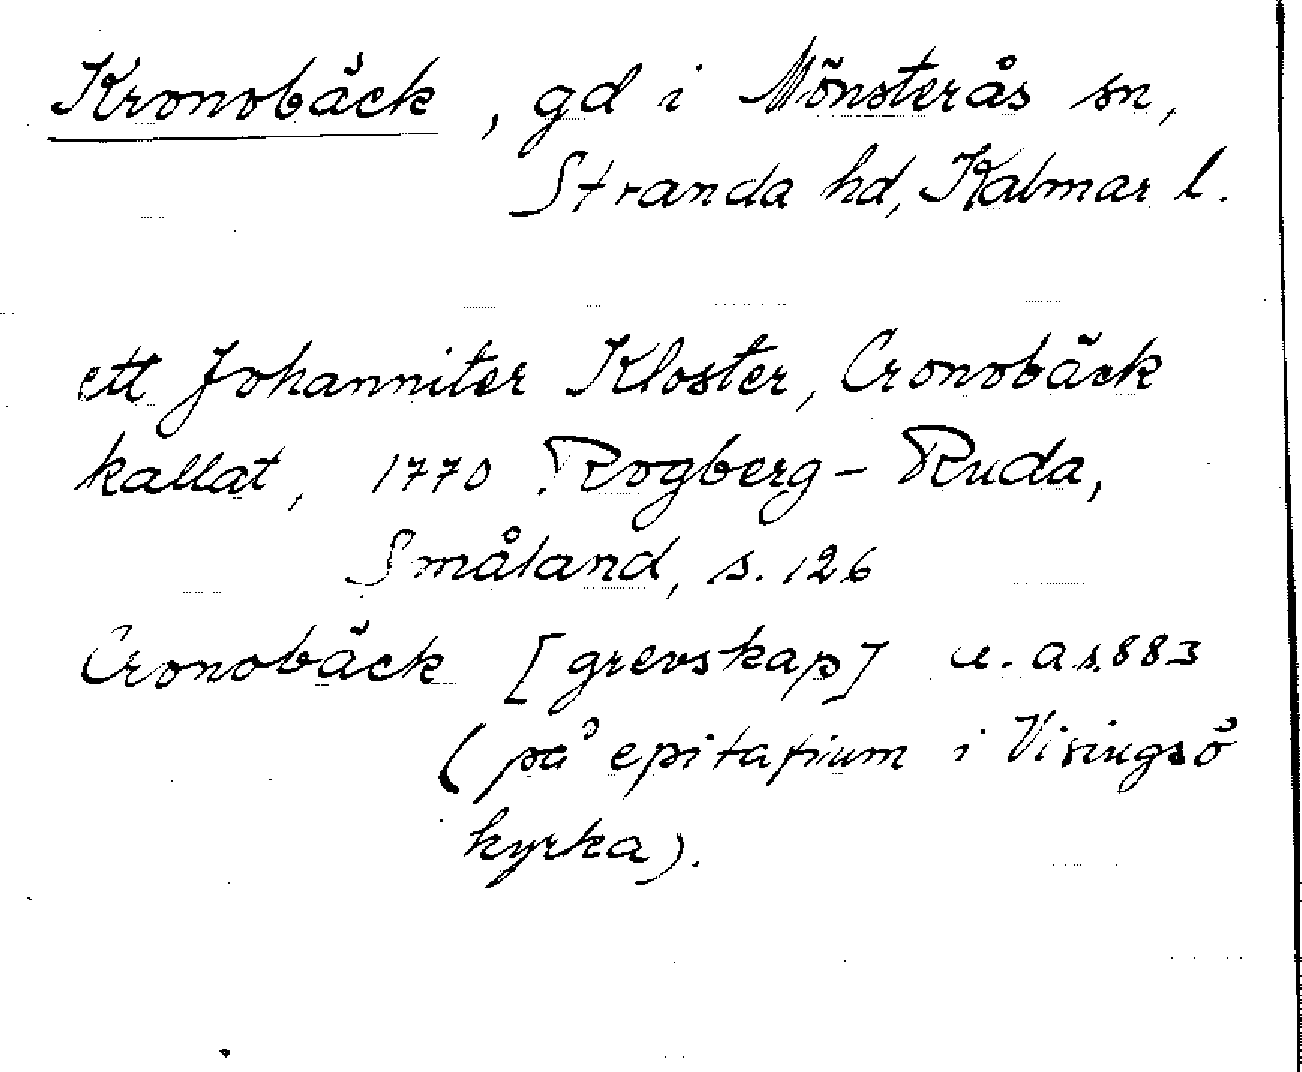 Kronobäck, gd i Mönsterås sn,
Stranda hd, Kalmar l.
ett Johanniter Kloster, Cronobäck
kallat, 1770 Rogberg-Ruda,
Småland, s. 126
Cronobäck [grevskap] u. a s. 883
(på epitafium i Visingsö
kyrka).